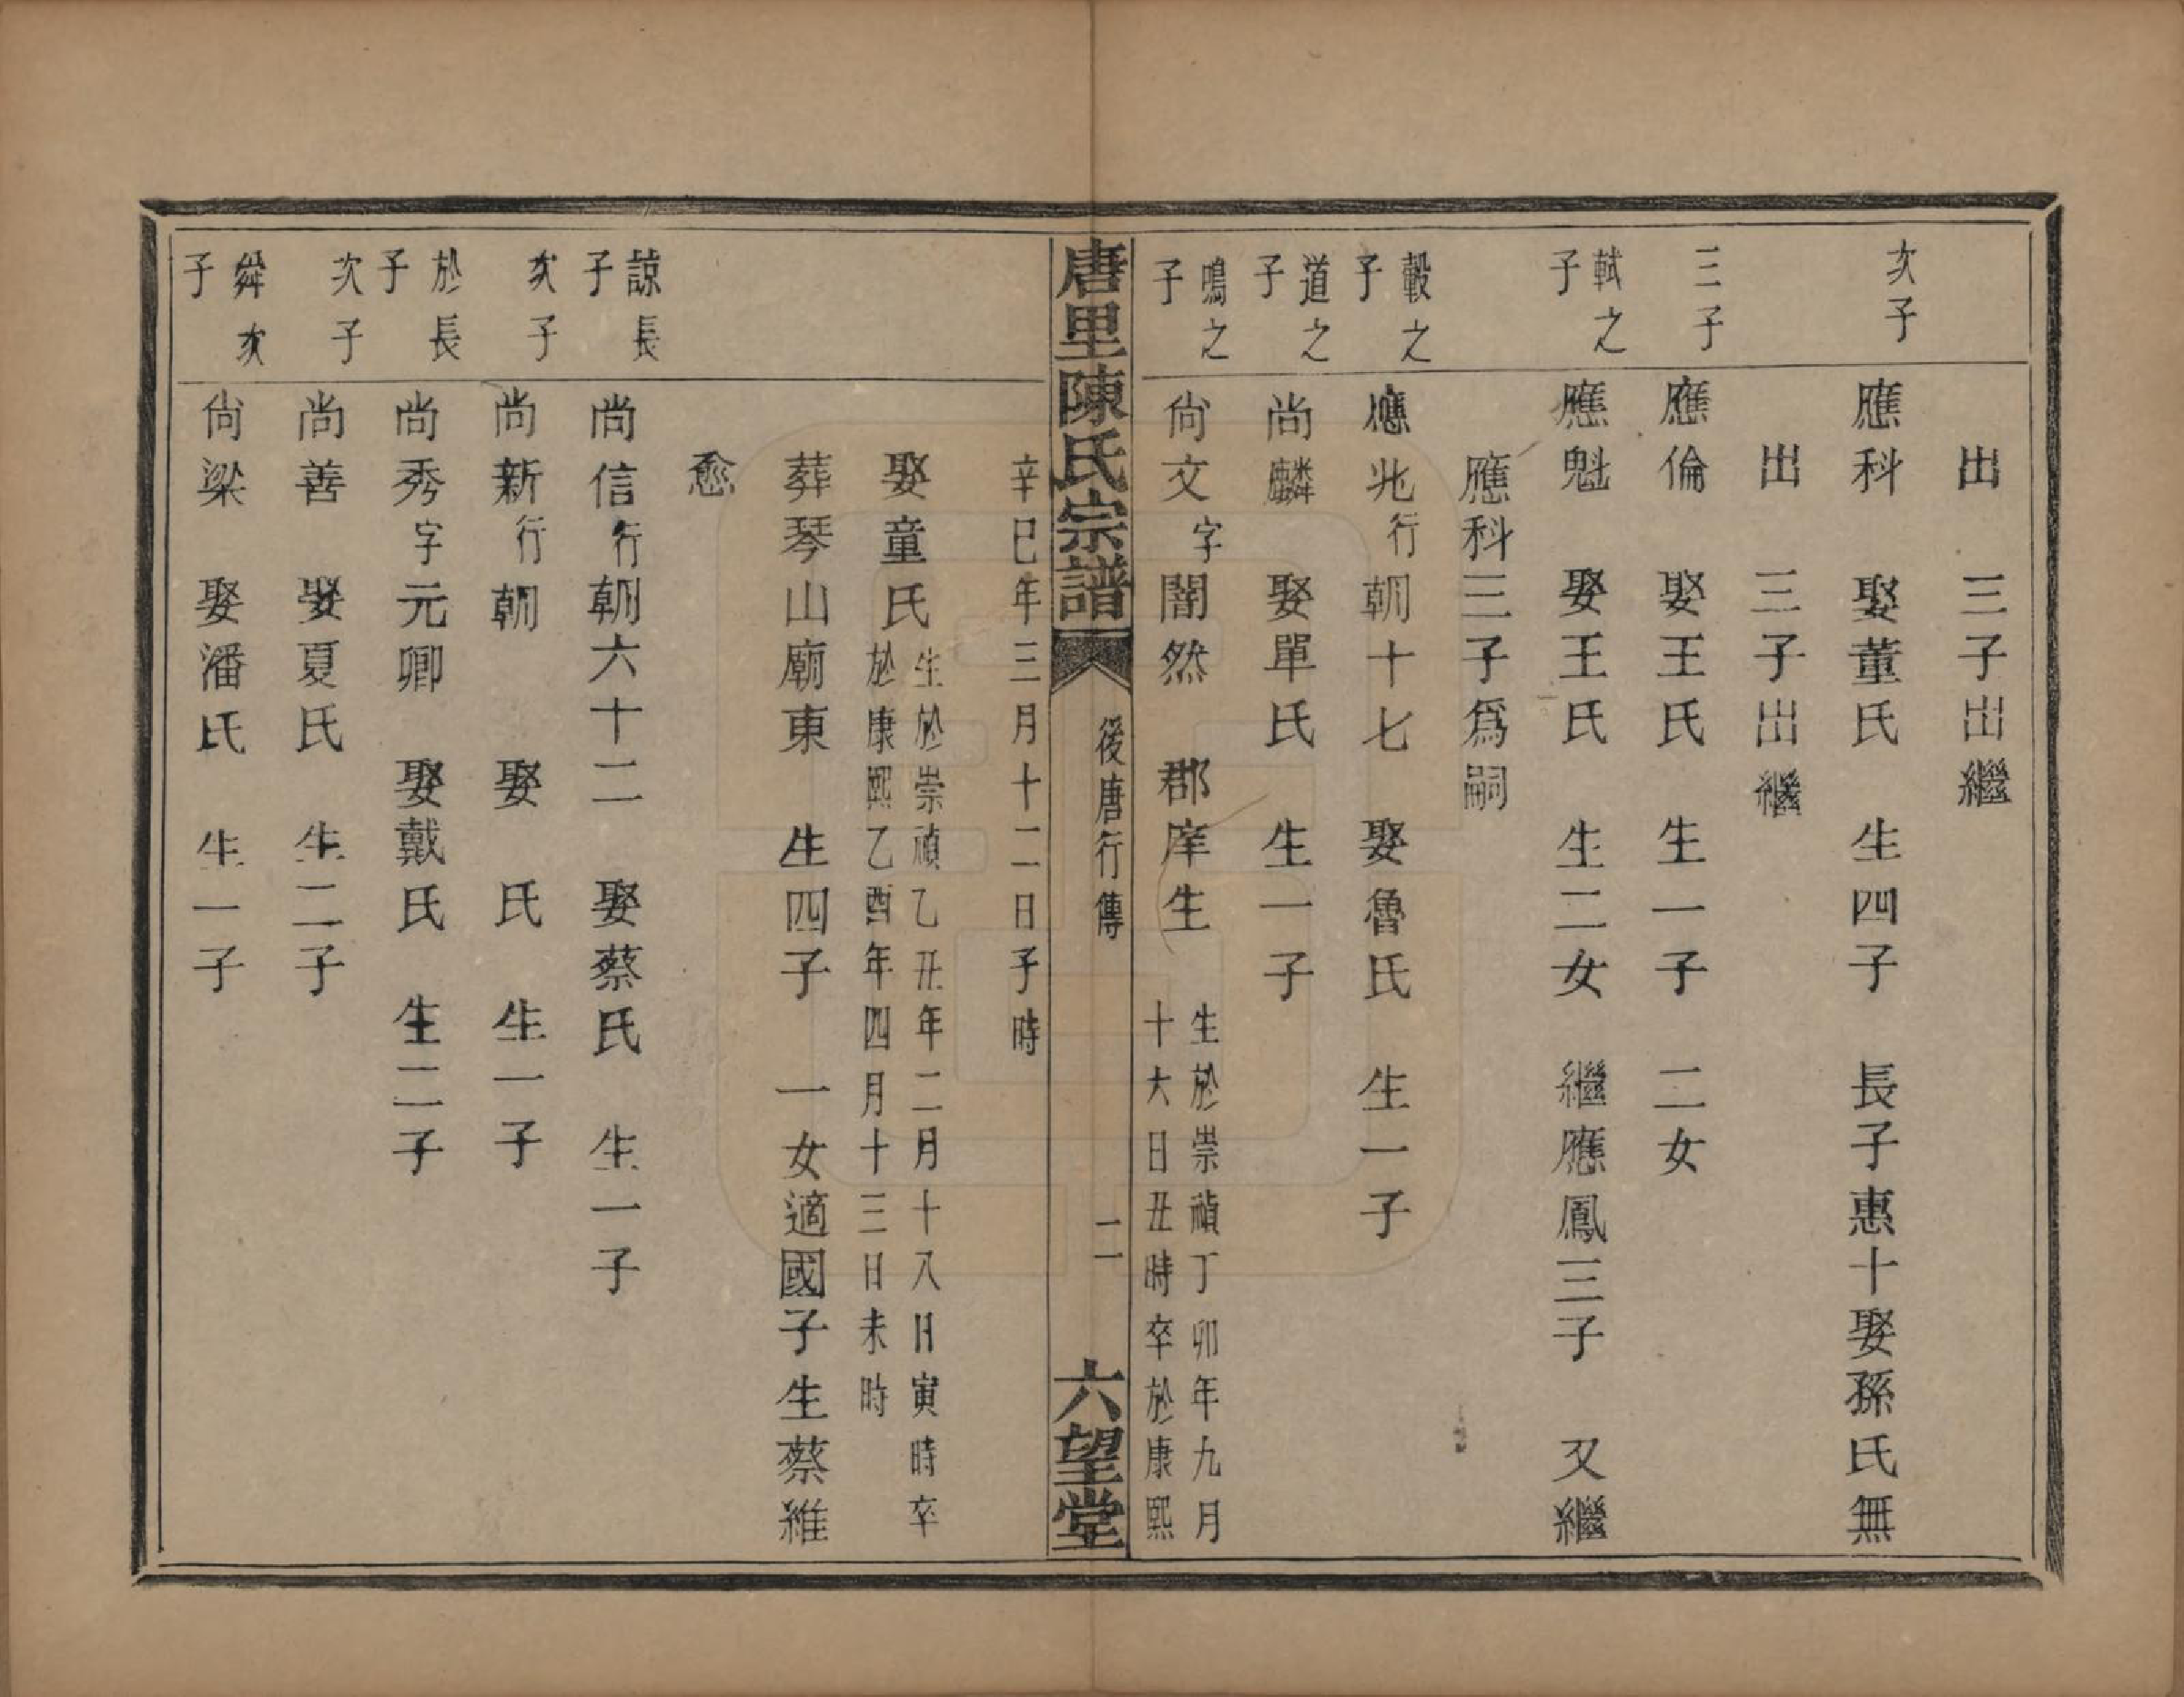 出　三子出繼
次子
應科　娶董氏　生四子　長子惠十娶孫氏無
出　三子出繼
三子
應倫　娶王氏　生一子　二女
軾之子
應魁　娶王氏　生二女　繼應鳳三子　又繼
應科三子爲嗣
轂之子
應兆行朝十七　娶魯氏　生一子
道之子
尚麟　娶單氏　生一子
鳴之子
尚文字闇然　郡庠生　生於崇禎丁卯年九月
十大日丑時卒於康熙
唐里陳氏宗譜
後唐行傳
二
六望堂
辛巳年三月十二日子時
娶童氏生於崇禎乙丑年二月十八日寅時卒
於康熙乙酉年四月十三日未時
葬琴山廟東　生四子　一女適國子生蔡維
愈
諒長子
尚信行朝六十二　娶蔡氏　生一子
次子
尚新行朝　娶　氏　生一子
於長子
尚秀字元卿　娶戴氏　生二子
次子
尚善　娶夏氏　生二子
舜次子
尚梁　娶潘氏　生一子